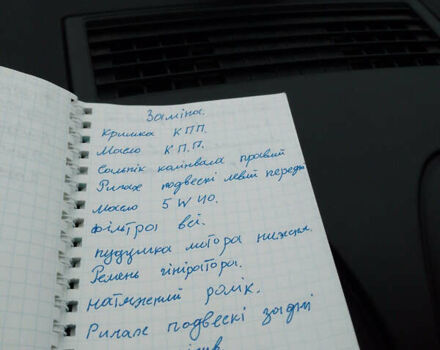 Заміна.
Кришка КПП.
Масло К.П.П.
Сальнік калінвала правий
Рилаж подвескі левій передні
Масло 5W40.
фільтра всі.
пудушка мотора нижня.
Ремень гініратора.
натяжний ролік.
Рилаж подвескі задні